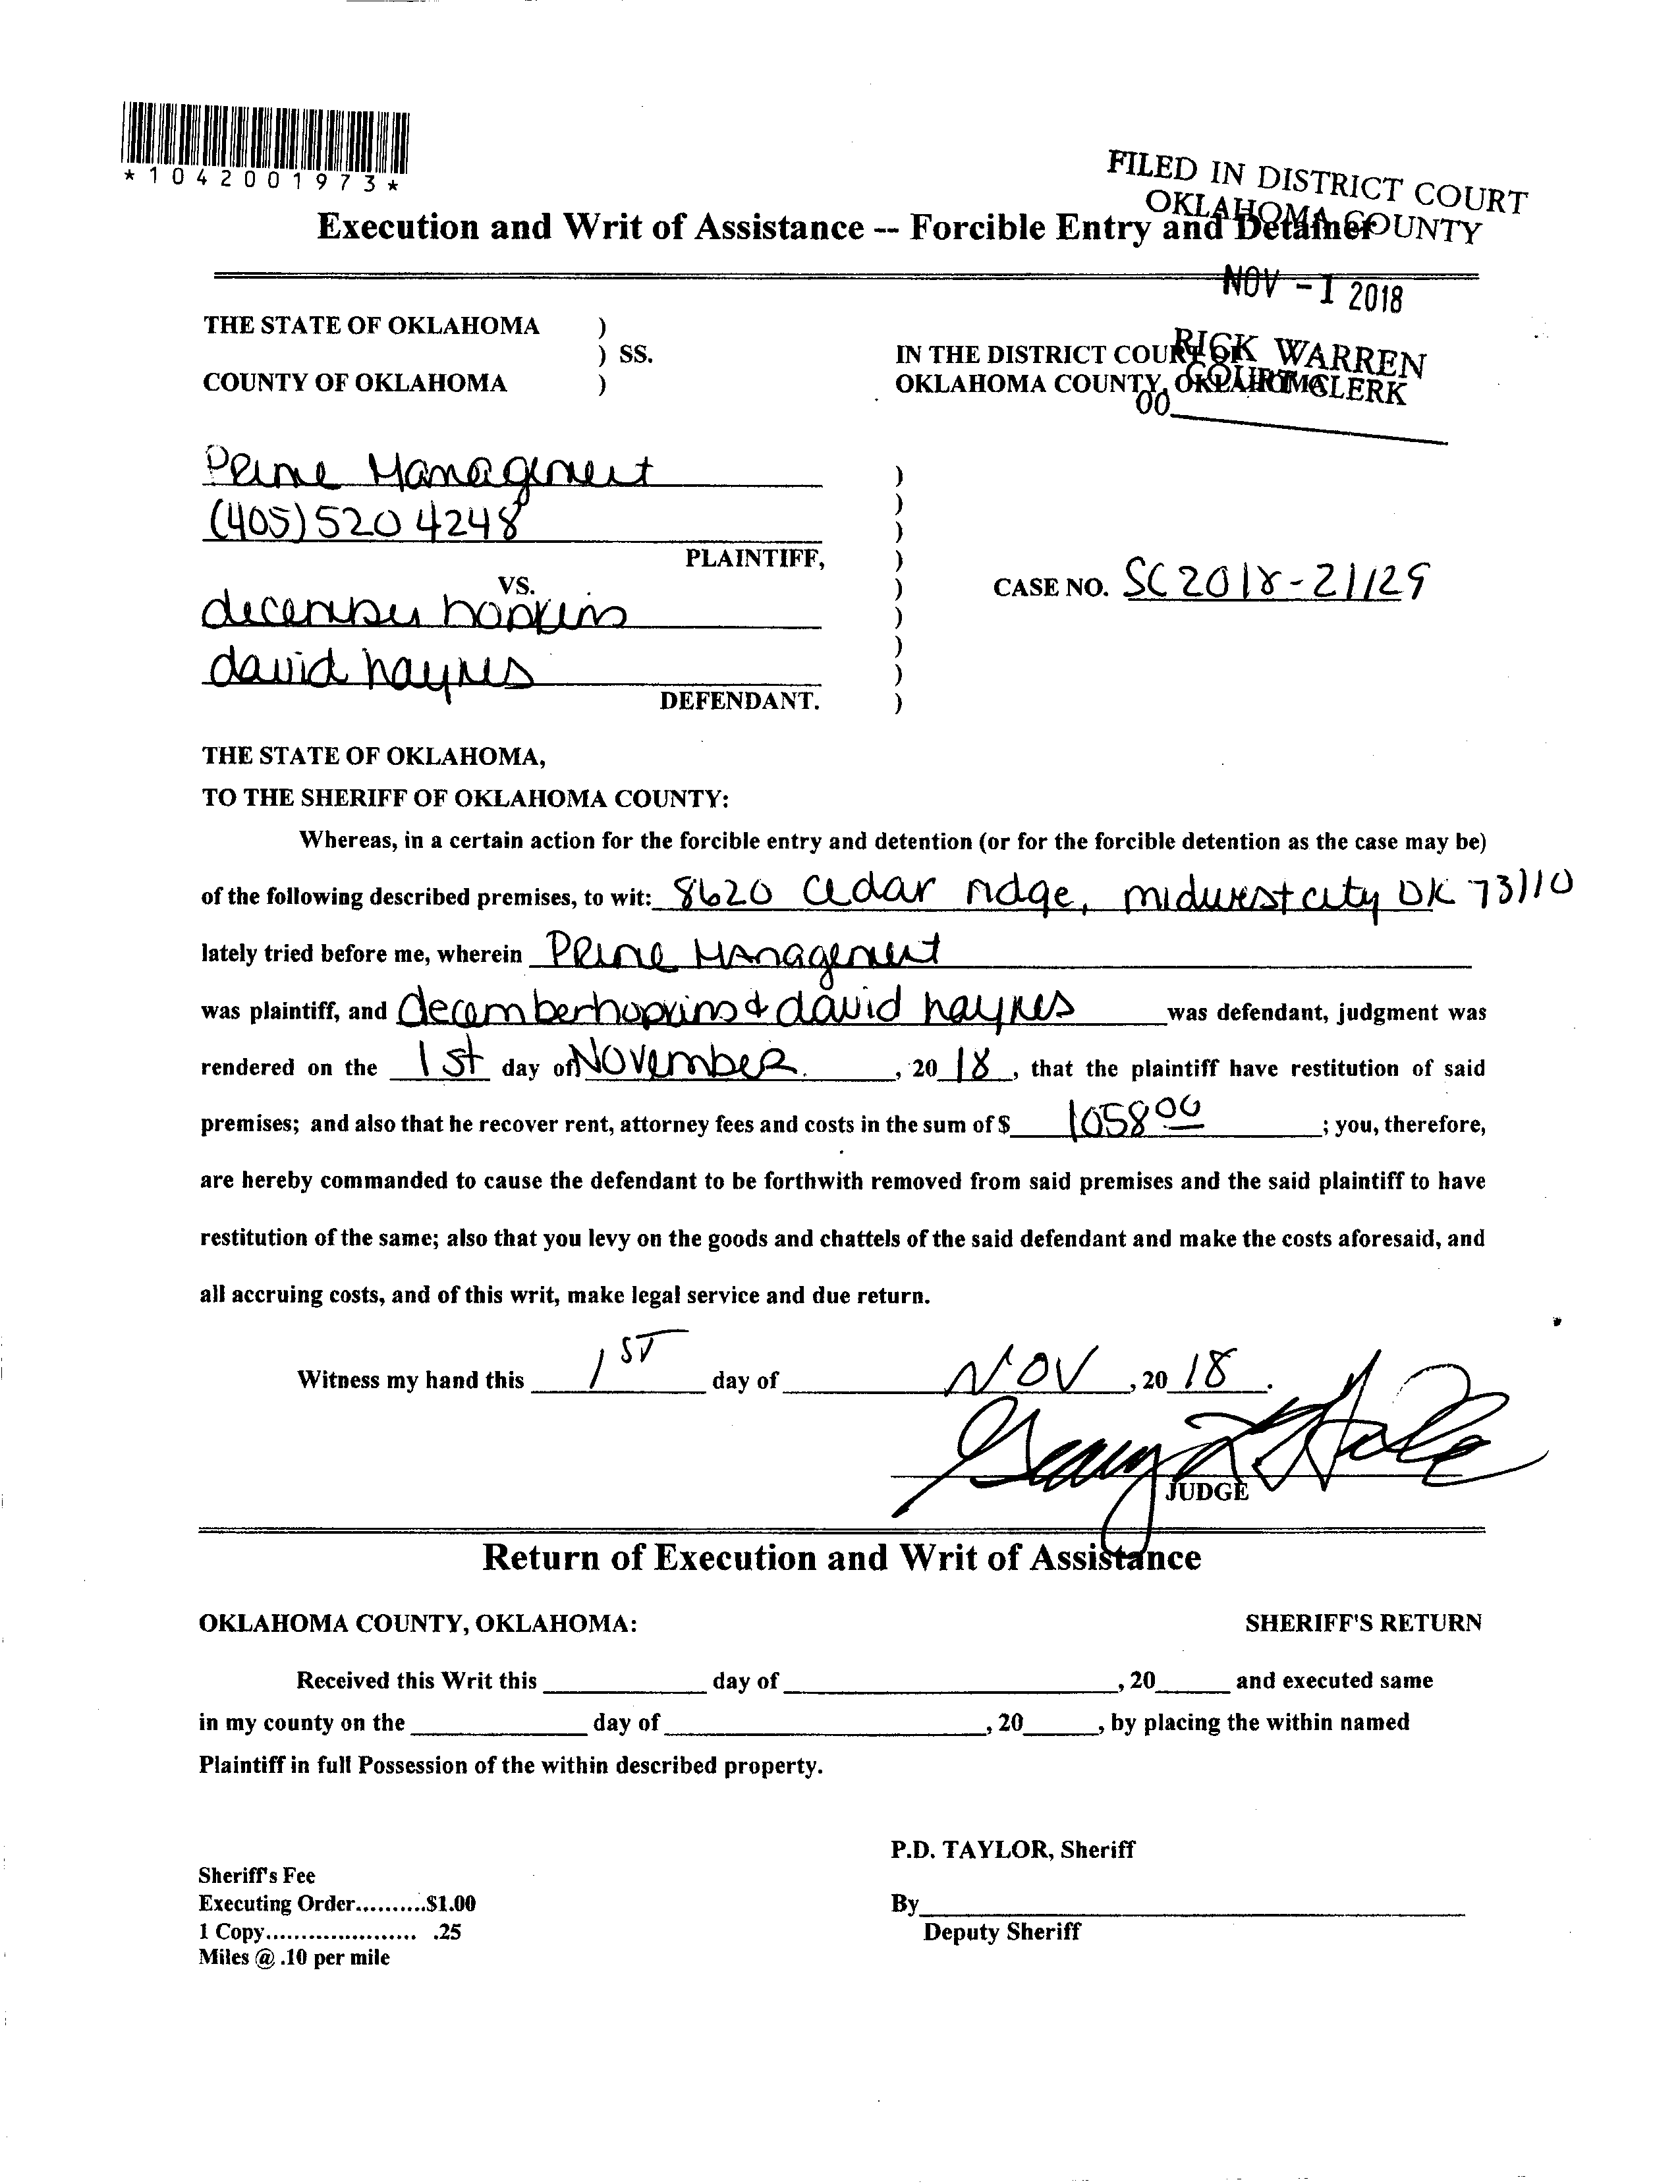 *1042001973*
FILED IN DISTRICT COURT
OKLAHOMA COUNTY
Execution and Writ of Assistance -- Forcible Entry and Detainer
NOV -1 2018
THE STATE OF OKLAHOMA )
) SS.
COUNTY OF OKLAHOMA )
RICK WARREN
COURT CLERK
IN THE DISTRICT COURT OF
OKLAHOMA COUNTY, OKLAHOMA
Prime Management )
(405) 520 4248 )
PLAINTIFF, )
VS. )
december hopkins )
david haynes )
DEFENDANT. )
CASE NO. SC 2018-21129
THE STATE OF OKLAHOMA,
TO THE SHERIFF OF OKLAHOMA COUNTY:
Whereas, in a certain action for the forcible entry and detention (or for the forcible detention as the case may be)
of the following described premises, to wit: 8620 Cedar ridge, midwest city OK 73110
lately tried before me, wherein Prime Management
was plaintiff, and december hopkins & david haynes was defendant, judgment was
rendered on the 1st day of November, 20 18, that the plaintiff have restitution of said
premises; and also that he recover rent, attorney fees and costs in the sum of $ 1058 00 ; you, therefore,
are hereby commanded to cause the defendant to be forthwith removed from said premises and the said plaintiff to have
restitution of the same; also that you levy on the goods and chattels of the said defendant and make the costs aforesaid, and
all accruing costs, and of this writ, make legal service and due return.
Witness my hand this 1ST day of NOV, 20 18.
JUDGE
Return of Execution and Writ of Assistance
OKLAHOMA COUNTY, OKLAHOMA: SHERIFF'S RETURN
Received this Writ this ____ day of ____, 20____ and executed same
in my county on the ____ day of ____, 20____, by placing the within named
Plaintiff in full Possession of the within described property.
P.D. TAYLOR, Sheriff
Sheriff's Fee
Executing Order..........$1.00
By____
1 Copy..................... .25
Deputy Sheriff
Miles @ .10 per mile